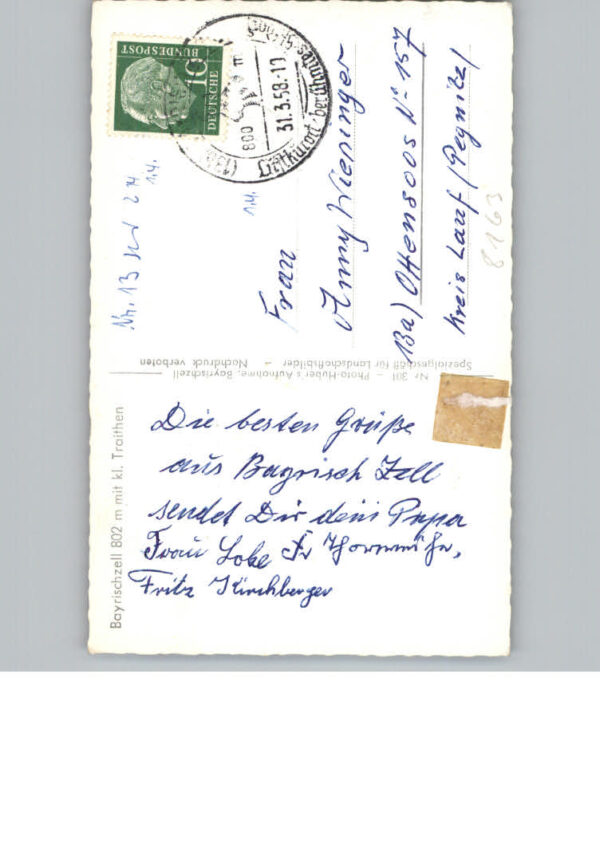 Die besten Grüße
aus Bayrisch Zell
sendet Dir dein Papa
Frau Lobe Fr
Fritz Kirchberger
Bayrischzell 802 m mit kl. Traithen
Nr. 301 – Photo-Huber's Aufnahme, Bayrischzell
Spezialgeschäft für Landschaftsbilder – Nachdruck verboten
Frau
Anny Wieninger
13a) Ottensoos No 157
Kreis Lauf/Pegnitz/
8163
Nr. 13
1.4.
1.4.
DEUTSCHE
BUNDESPOST
10
31.3.58.-19
800
Luftkurort